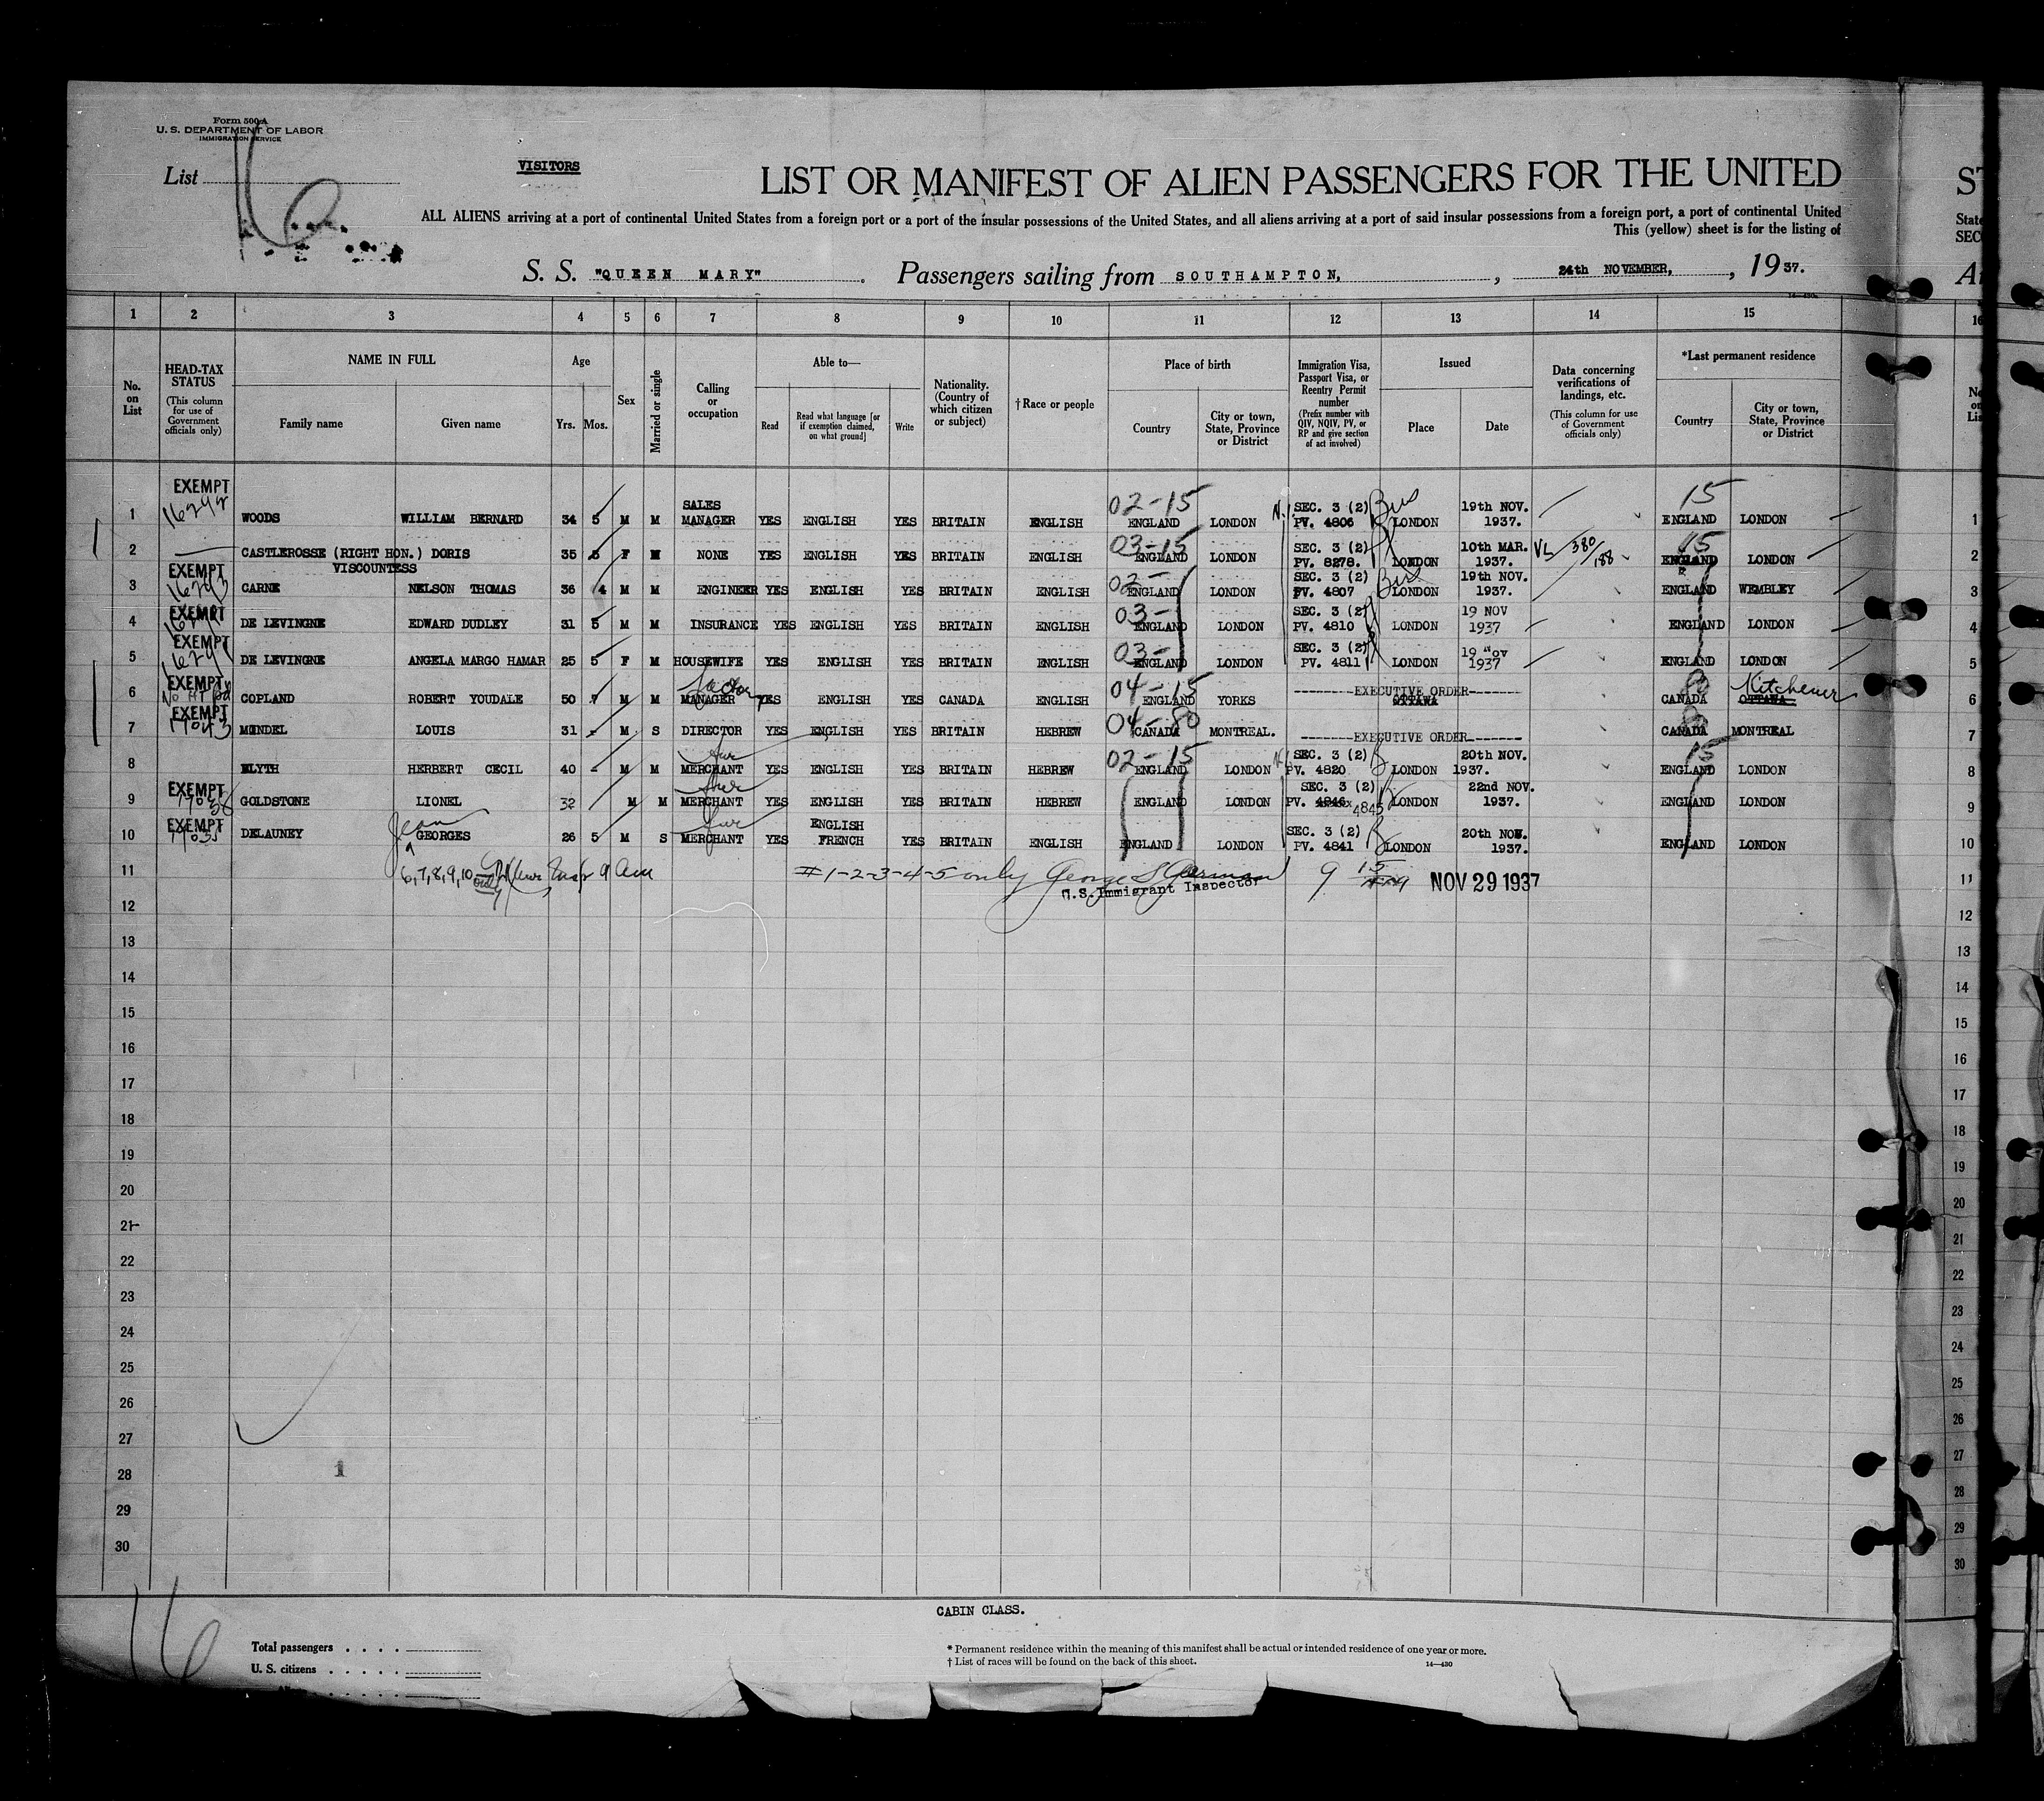 Form 500-A
U. S. DEPARTMENT OF LABOR
IMMIGRATION SERVICE
List
VISITORS
LIST OR MANIFEST OF ALIEN PASSENGERS FOR THE UNITED
ALL ALIENS arriving at a port of continental United States from a foreign port or a port of the insular possessions of the United States, and all aliens arriving at a port of said insular possessions from a foreign port, a port of continental United
This (yellow) sheet is for the listing of
S. S. "QUEEN MARY" Passengers sailing from SOUTHAMPTON, , 24th NOVEMBER, , 1937.
1 2 3 4 5 6 7 8 9 10 11 12 13 14 15 16
No. on List
HEAD-TAX STATUS (This column for use of Government officials only)
NAME IN FULL
Family name Given name
Age
Yrs. Mos.
Sex
Married or single
Calling or occupation
Able to—
Read
Read what language [or if exemption claimed, on what ground]
Write
Nationality. (Country of which citizen or subject)
†Race or people
Place of birth
Country
City or town, State, Province or District
Immigration Visa, Passport Visa, or Reentry Permit number (Prefix number with QIV, NQIV, PV, or RP and give section of act involved)
Issued
Place Date
Data concerning verifications of landings, etc. (This column for use of Government officials only)
*Last permanent residence
Country
City or town, State, Province or District
1 EXEMPT WOODS WILLIAM BERNARD 34 5 M M SALES MANAGER YES ENGLISH YES BRITAIN ENGLISH 02-15 ENGLAND LONDON SEC. 3 (2) PV. 4806 Bus LONDON 19th NOV. 1937. 15 ENGLAND LONDON 1
2 CASTLEROSSE (RIGHT HON.) DORIS VISCOUNTESS 35 5 F M NONE YES ENGLISH YES BRITAIN ENGLISH 03-15 ENGLAND LONDON SEC. 3 (2) PV. 8278. LONDON 10th MAR. 1937. VL 380/188 15 ENGLAND LONDON 2
3 EXEMPT 16293 CARNE NELSON THOMAS 36 4 M M ENGINEER YES ENGLISH YES BRITAIN ENGLISH 02- ENGLAND LONDON SEC. 3 (2) PV. 4807 Bus LONDON 19th NOV. 1937. ENGLAND WEMBLEY 3
4 EXEMPT DE LEVINGNE EDWARD DUDLEY 31 5 M M INSURANCE YES ENGLISH YES BRITAIN ENGLISH 03- ENGLAND LONDON SEC. 3 (2) PV. 4810 LONDON 19 NOV 1937 ENGLAND LONDON 4
5 EXEMPT DE LEVINGNE ANGELA MARGO HAMAR 25 5 F M HOUSEWIFE YES ENGLISH YES BRITAIN ENGLISH 03- ENGLAND LONDON SEC. 3 (2) PV. 4811 LONDON 19 Nov 1937 ENGLAND LONDON 5
6 EXEMPT COPLAND ROBERT YOUDALE 50 7 M M MANAGER YES ENGLISH YES CANADA ENGLISH 04-15 ENGLAND YORKS --------EXECUTIVE ORDER------- OTTAWA 80 CANADA OTTAWA Kitchener 6
7 EXEMPT 17043 MENDEL LOUIS 31 - M S DIRECTOR YES ENGLISH YES BRITAIN HEBREW 04-80 CANADA MONTREAL. -------EXECUTIVE ORDER------- 80 CANADA MONTREAL 7
8 BLYTH HERBERT CECIL 40 - M M fur MERCHANT YES ENGLISH YES BRITAIN HEBREW 02-15 ENGLAND LONDON SEC. 3 (2) PV. 4820 B LONDON 20th NOV. 1937. 15 ENGLAND LONDON 8
9 EXEMPT 17038 GOLDSTONE LIONEL 32 M M fur MERCHANT YES ENGLISH YES BRITAIN HEBREW ENGLAND LONDON SEC. 3 (2) PV. 4846x 4845 LONDON 22nd NOV. 1937. ENGLAND LONDON 9
10 EXEMPT 17035 DELAUNEY Jean GEORGES 26 5 M S fur MERCHANT YES ENGLISH FRENCH YES BRITAIN ENGLISH ENGLAND LONDON SEC. 3 (2) PV. 4841 B LONDON 20th NOV. 1937. ENGLAND LONDON 10
11 6,7,8,9,10 only #1-2-3-4-5 only George S U.S. Immigrant Inspector 9 NOV 29 1937 11
12 12
13 13
14 14
15 15
16 16
17 17
18 18
19 19
20 20
21 21
22 22
23 23
24 24
25 25
26 26
27 27
28 1 28
29 29
30 30
16
CABIN CLASS.
Total passengers . . . .
U. S. citizens . . . . .
* Permanent residence within the meaning of this manifest shall be actual or intended residence of one year or more.
† List of races will be found on the back of this sheet.
14—430